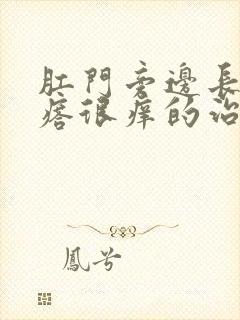 肛門旁邊長
瘩很痒的治
鳳兮